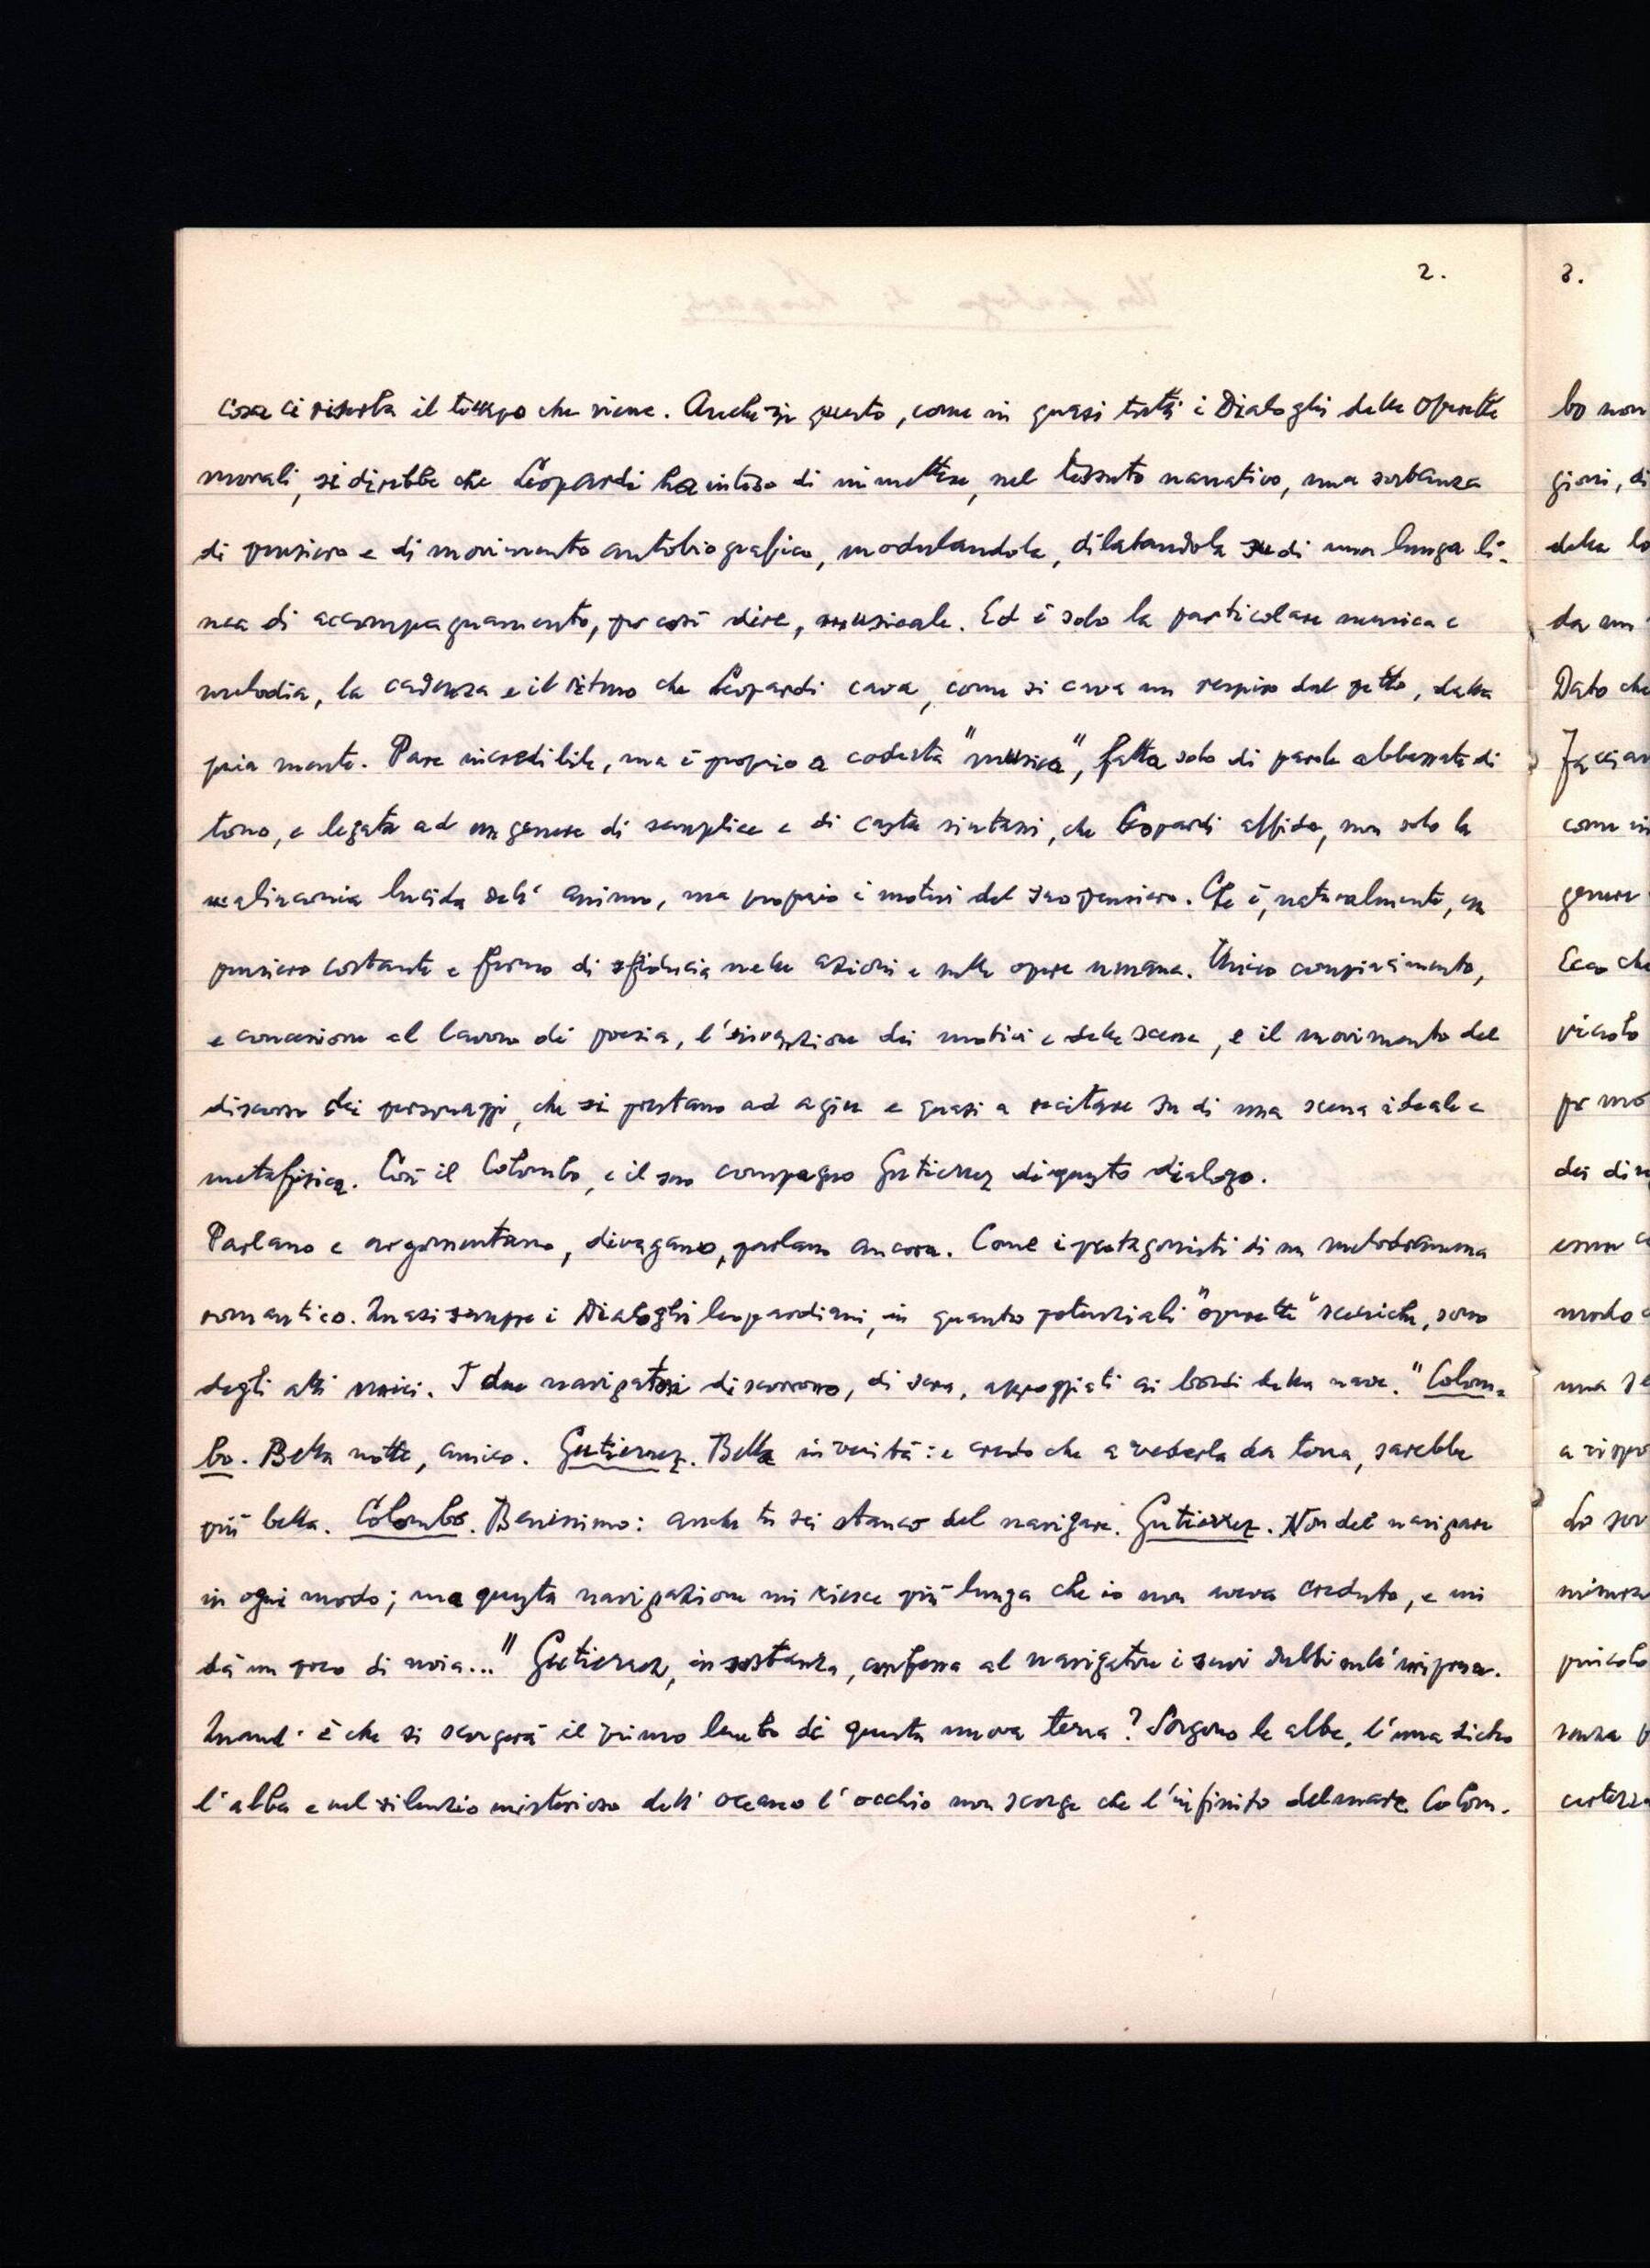 2.
cosa ci riserba il tempo che viene. Anche in questo, come in quasi tutti i Dialoghi delle Operette
morali, si direbbe che Leopardi ha inteso di immettere, nel tessuto narrativo, una sostanza
di pensiero e di movimento autobiografico, modulandola, dilatandola su di una lunga li-
nea di accompagnamento, per così dire, musicale. Ed è solo la particolare musica e
melodia, la cadenza e il ritmo che Leopardi cava, come si cava un respiro dal petto, dalla
pria mente. Pare incredibile, ma è proprio a codesta "musica", fatta solo di parole abbassate di
tono, e legata ad un genere di semplice e di casta sintassi, che Leopardi affida, non solo la
malinconia lucida dell' animo, ma proprio i motivi del suo pensiero. Che è, naturalmente, un
pensiero costante e fermo di sfiducia nelle azioni e nelle opere umane. Unico compiacimento,
e concessione al lavoro di poesia, l'invenzione dei motivi e delle scene, e il movimento del
discorso dei personaggi, che si prestano ad agire e quasi a recitare su di una scena ideale e
metafisica. Così il Colombo, e il suo compagno Gutierrez di questo dialogo.
Parlano e argomentano, divagano, parlano ancora. Come i protagonisti di un melodramma
romantico. Quasi sempre i Dialoghi leopardiani, in quanto potenziali "operette" sceniche, sono
degli atti unici. I due navigatori discorrono, di sera, appoggiati ai bordi della nave. "Colom-
bo. Bella notte, amico. Gutierrez. Bella in verità: e credo che a vederla da terra, sarebbe
più bella. Colombo. Benissimo: anche tu sei stanco del navigare. Gutierrez. Non del navigare
in ogni modo; ma questa navigazione mi riesce più lunga che io non aveva creduto, e mi
dà un poco di noia..." Gutierrez, in sostanza, confessa al navigatore i suoi dubbi sull' impresa.
Quand' è che si scorgerà il primo lembo di questa nuova terra? Sorgono le albe, l'una dietro
l'altra e nel silenzio misterioso dell' oceano l' occhio non scorge che l'infinito del mare. Colom-
3.
bo non
gioni, di
della lo
da un
Dato che
Facciam
come in
genere
Ecco che
piccolo
per mo
dei di
come
modo
una se
a rispo
Lo
misura
piccolo
senza p
certezza